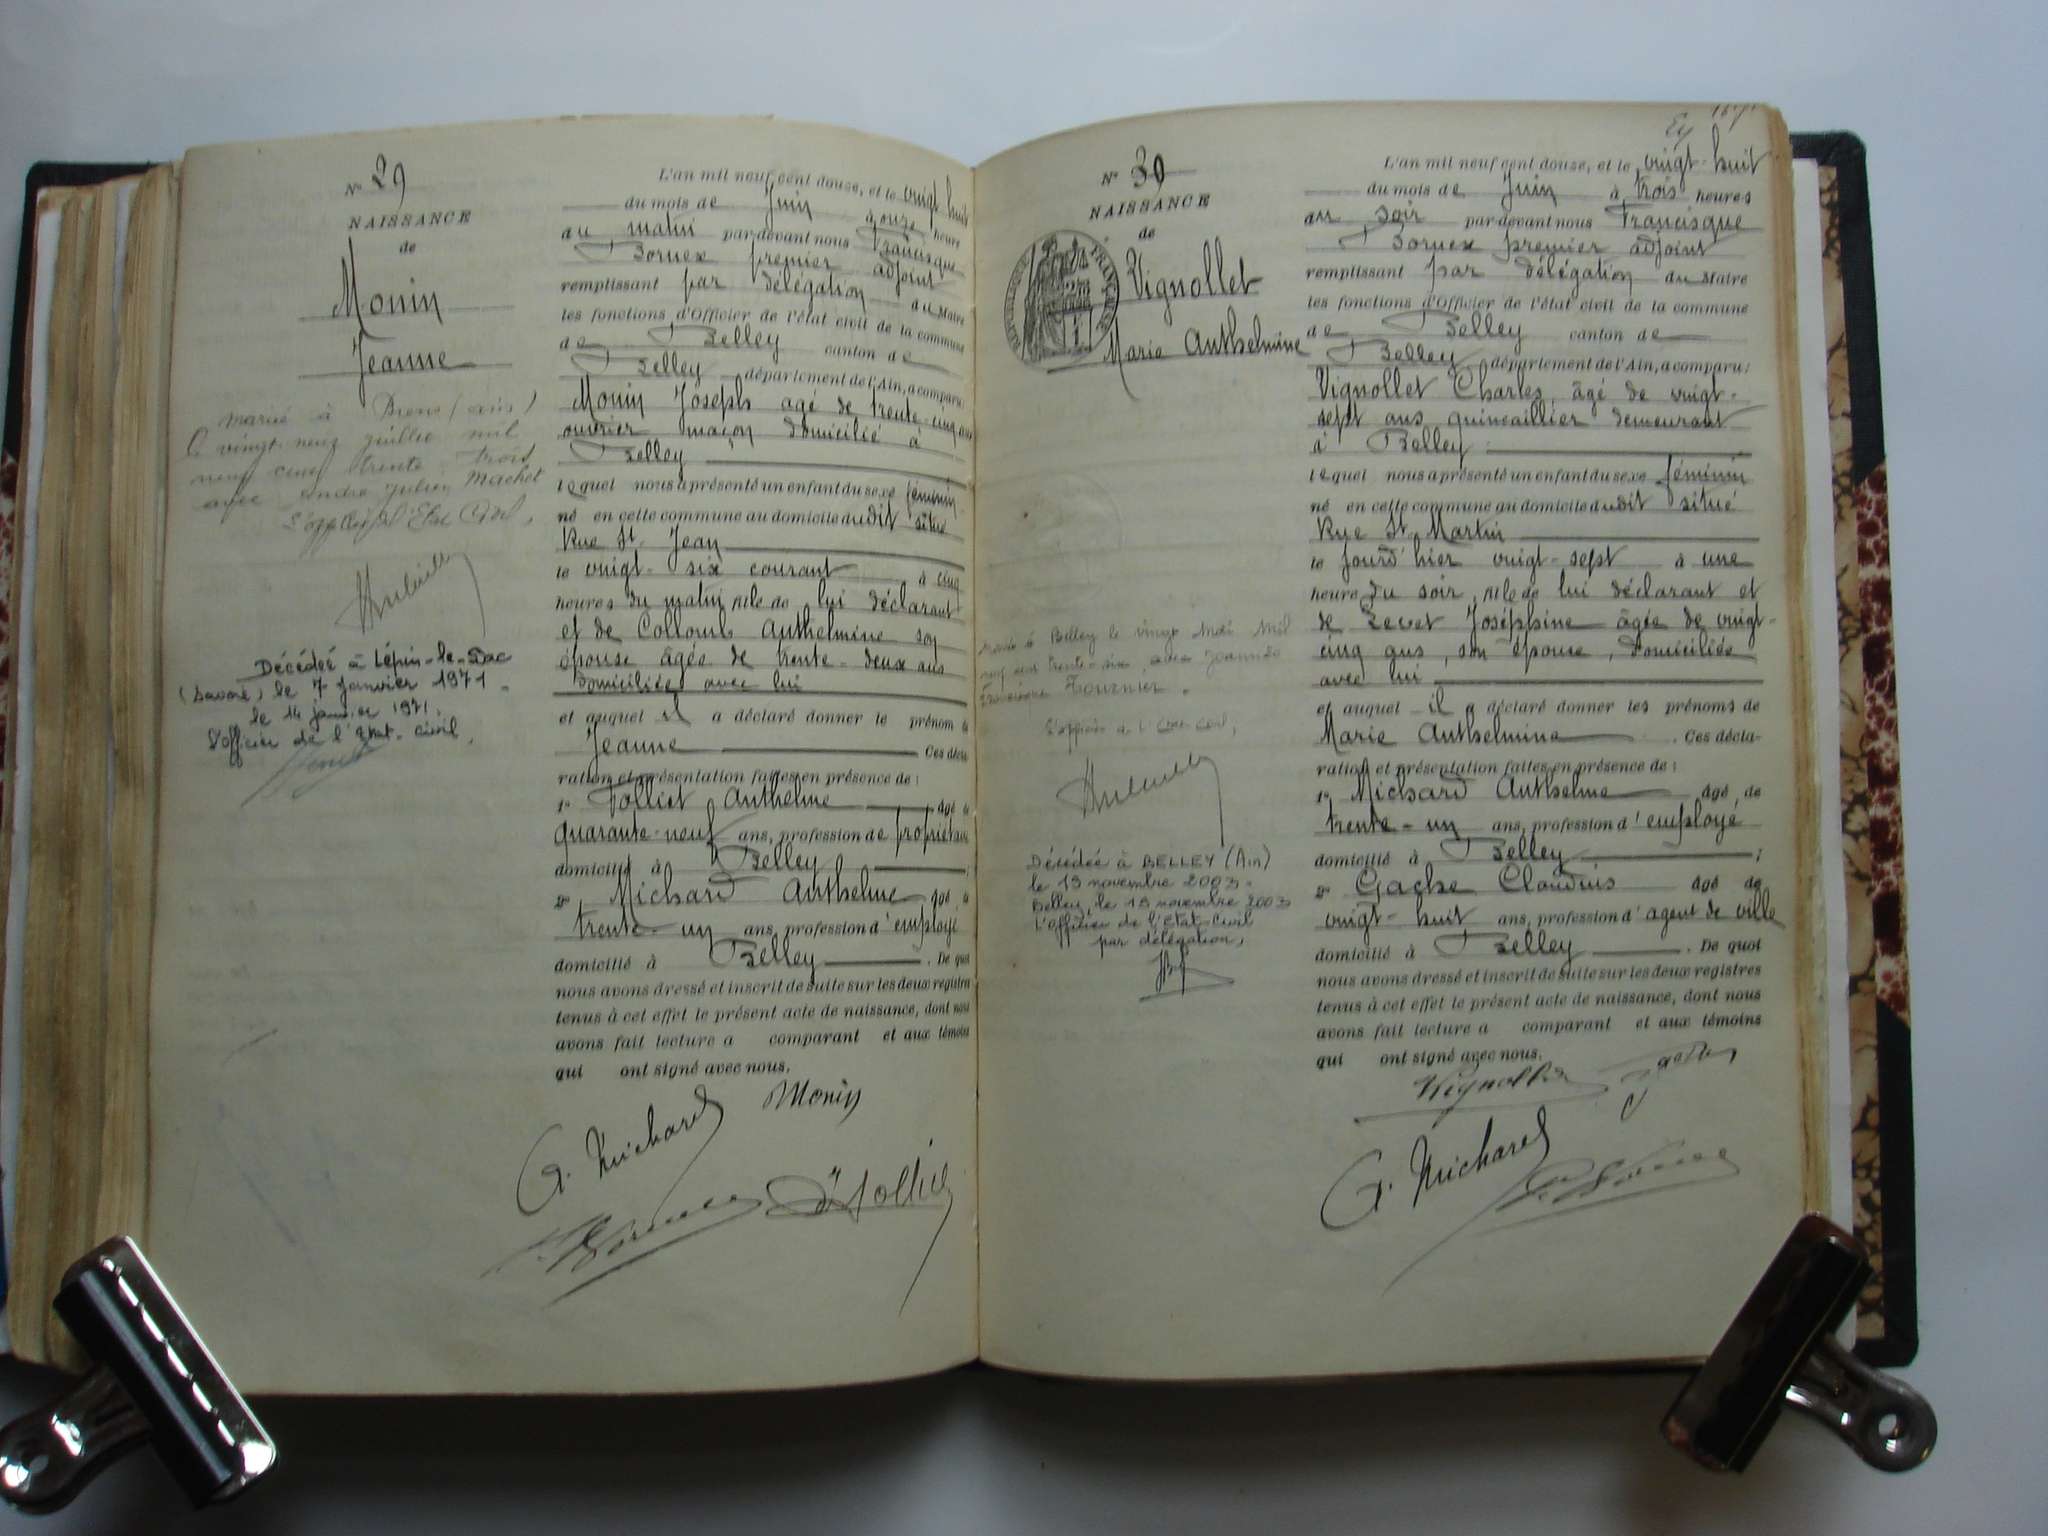 N° 29
NAISSANCE
de
Monin
Jeanne
marié à Brens (ain)
le vingt-neuf juillet mil
neuf cent trente-trois
avec andré Julien Machet
L'officier de l'Etat Civil,
Décédée à Lépin-le-Lac
(Savoie) le 7 janvier 1971.
le 14 janvier 1971.
L'officier de l'Etat-Civil,
L'an mil neuf cent douze, et le vingt huit
du mois de Juin à onze heure
au matin par-devant nous Francisque
Bornex premier adjoint
remplissant par délégation du Maire
les fonctions d'Officier de l'état civil de la commune
de Belley canton de
Belley département de l'Ain, a comparu:
Monin Joseph âgé de trente-cinq ans
ouvrier maçon domicilié à
Belley
lequel nous a présenté un enfant du sexe féminin
né en cette commune au domicile dudit situé
Rue St. Jean
le vingt-six courant à cinq
heures du matin fille de lui déclarant
et de Collomb Anthelmine son
épouse âgée de trente-deux ans
domiciliée avec lui
et auquel il a déclaré donner le prénom de
Jeanne Ces décla
ration et présentation faites en présence de:
1° Folliet Anthelme âgé de
quarante-neuf ans, profession de propriétaire
domicilié à Belley ;
2° Michard Anthelme âgé de
trente-un ans, profession d'employé
domicilié à Belley . De quoi
nous avons dressé et inscrit de suite sur les deux registres
tenus à cet effet le présent acte de naissance, dont nous
avons fait lecture a comparant et aux témoins
qui ont signé avec nous.
Monin
A. Michard
Folliet
F. Bornex
N° 30
NAISSANCE
de
REPUBLIQUE FRANÇAISE
Vignollet
Marie Anthelmine
Mariée à Belley le vingt Mai mil
neuf cent trente-six avec Joannès
Francisque Tournier.
L'officier de l'Etat Civil,
Décédée à BELLEY (Ain)
le 19 novembre 2003.
Belley, le 19 novembre 2003
L'officier de l'Etat-Civil
par délégation,
L'an mil neuf cent douze, et le vingt-huit
du mois de Juin à trois heures
au soir par-devant nous Francisque
Bornex premier adjoint
remplissant par délégation du Maire
les fonctions d'Officier de l'état civil de la commune
de Belley canton de
Belley département de l'Ain, a comparu:
Vignollet Charles, âgé de vingt-
sept ans quincaillier demeurant
à Belley
lequel nous a présenté un enfant du sexe féminin
né en cette commune au domicile dudit situé
Rue St Martin
le jourd'hier vingt-sept à une
heure du soir, fille de lui déclarant et
de Revet Joséphine âgée de vingt-
cinq ans, son épouse, domiciliée
avec lui
et auquel il a déclaré donner les prénoms de
Marie Anthelmine . Ces décla-
ration et présentation faites en présence de:
1° Michard Anthelme âgé, de
trente-un ans, profession d'employé
domicilié à Belley ;
2° Gache Claudius âgé de
vingt-huit ans, profession d'agent de ville
domicilié à Belley . De quoi
nous avons dressé et inscrit de suite sur les deux registres
tenus à cet effet le présent acte de naissance, dont nous
avons fait lecture a comparant et aux témoins
qui ont signé avec nous.
Vignollet
A. Michard
F. Bornex